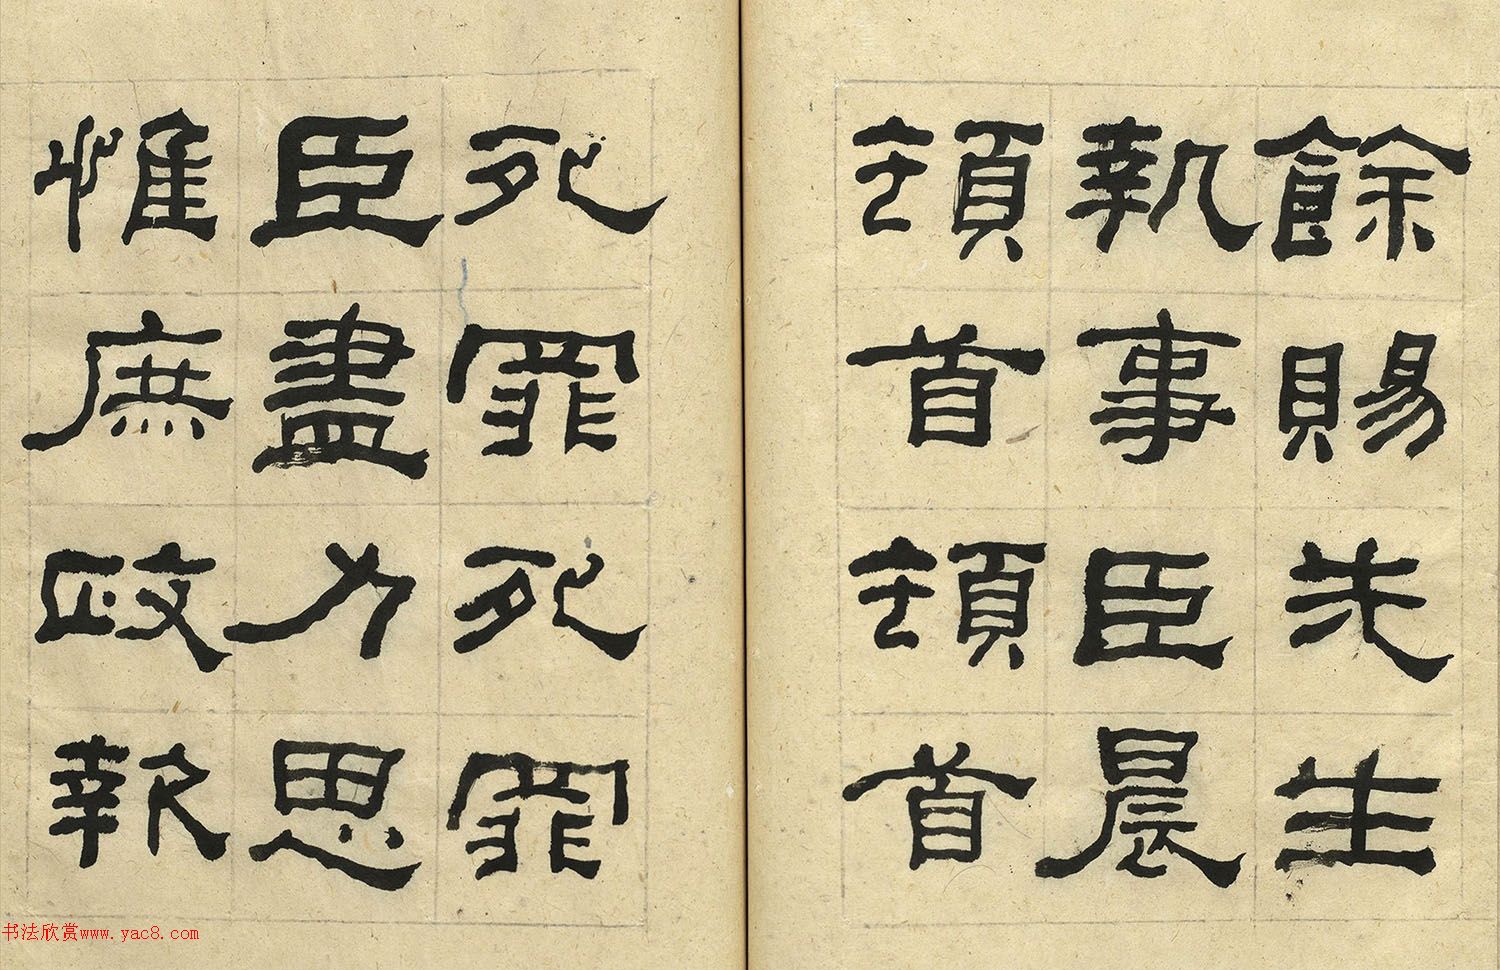 餘賜先生
執事臣晨
頓首頓首
死罪死罪
臣盡力思
惟庶政報
书法欣赏www.yac8.com